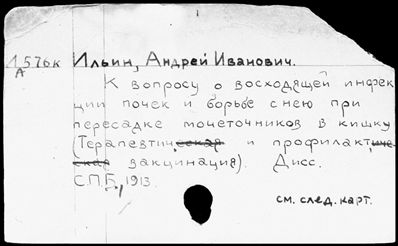 А576к Ильин, Андрей Иванович.
А
К вопросу о восходящей инфек
ции почек и борьбе с нею при
пересадке мочеточников в кишку
(Терапевтическая и профилактиче
ская вакцинация). Дисс.
С.П.Б, 1913.
см. след. карт.